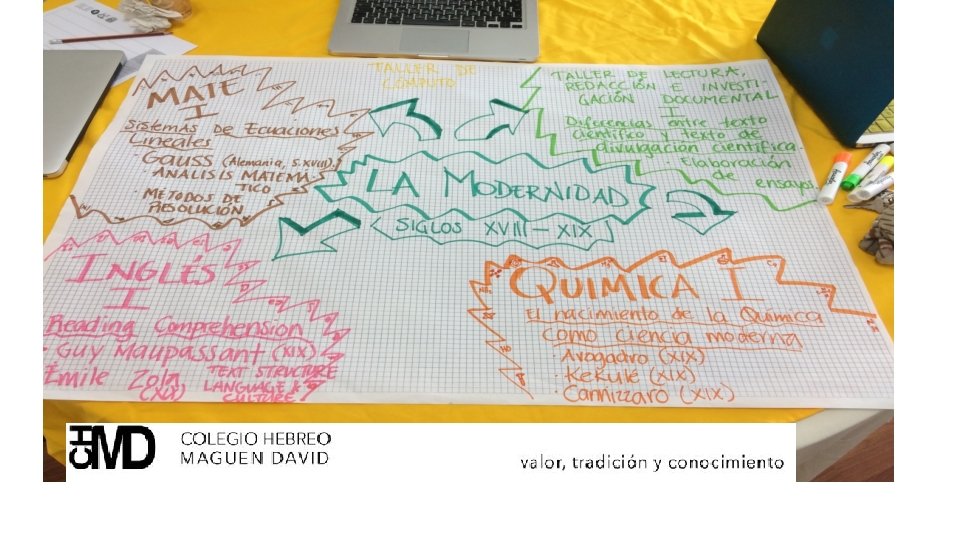 TALLER DE
CÓMPUTO
MATE
I
Sistemas de Ecuaciones
Lineales
· GAUSS (Alemania, S.XVIII)
ANÁLISIS MATEMÁ-
TICO
MÉTODOS DE
RESOLUCIÓN
TALLER DE LECTURA,
REDACCIÓN E INVESTI-
GACIÓN DOCUMENTAL
I
Diferencias entre texto
científico y texto de
divulgación científica.
· Elaboración
de ensayos
LA MODERNIDAD
(SIGLOS XVIII - XIX)
INGLÉS
I
Reading Comprehension
· Guy Maupassant (XIX)
Émile Zola
(XIX)
TEXT STRUCTURE
LANGUAGE &
CULTURE
QUÍMICA I
El nacimiento de la Química
como ciencia moderna
· Avogadro (XIX)
· Kekulé (XIX)
· Cannizzaro (XIX)
CHMD
COLEGIO HEBREO
MAGUEN DAVID
valor, tradición y conocimiento